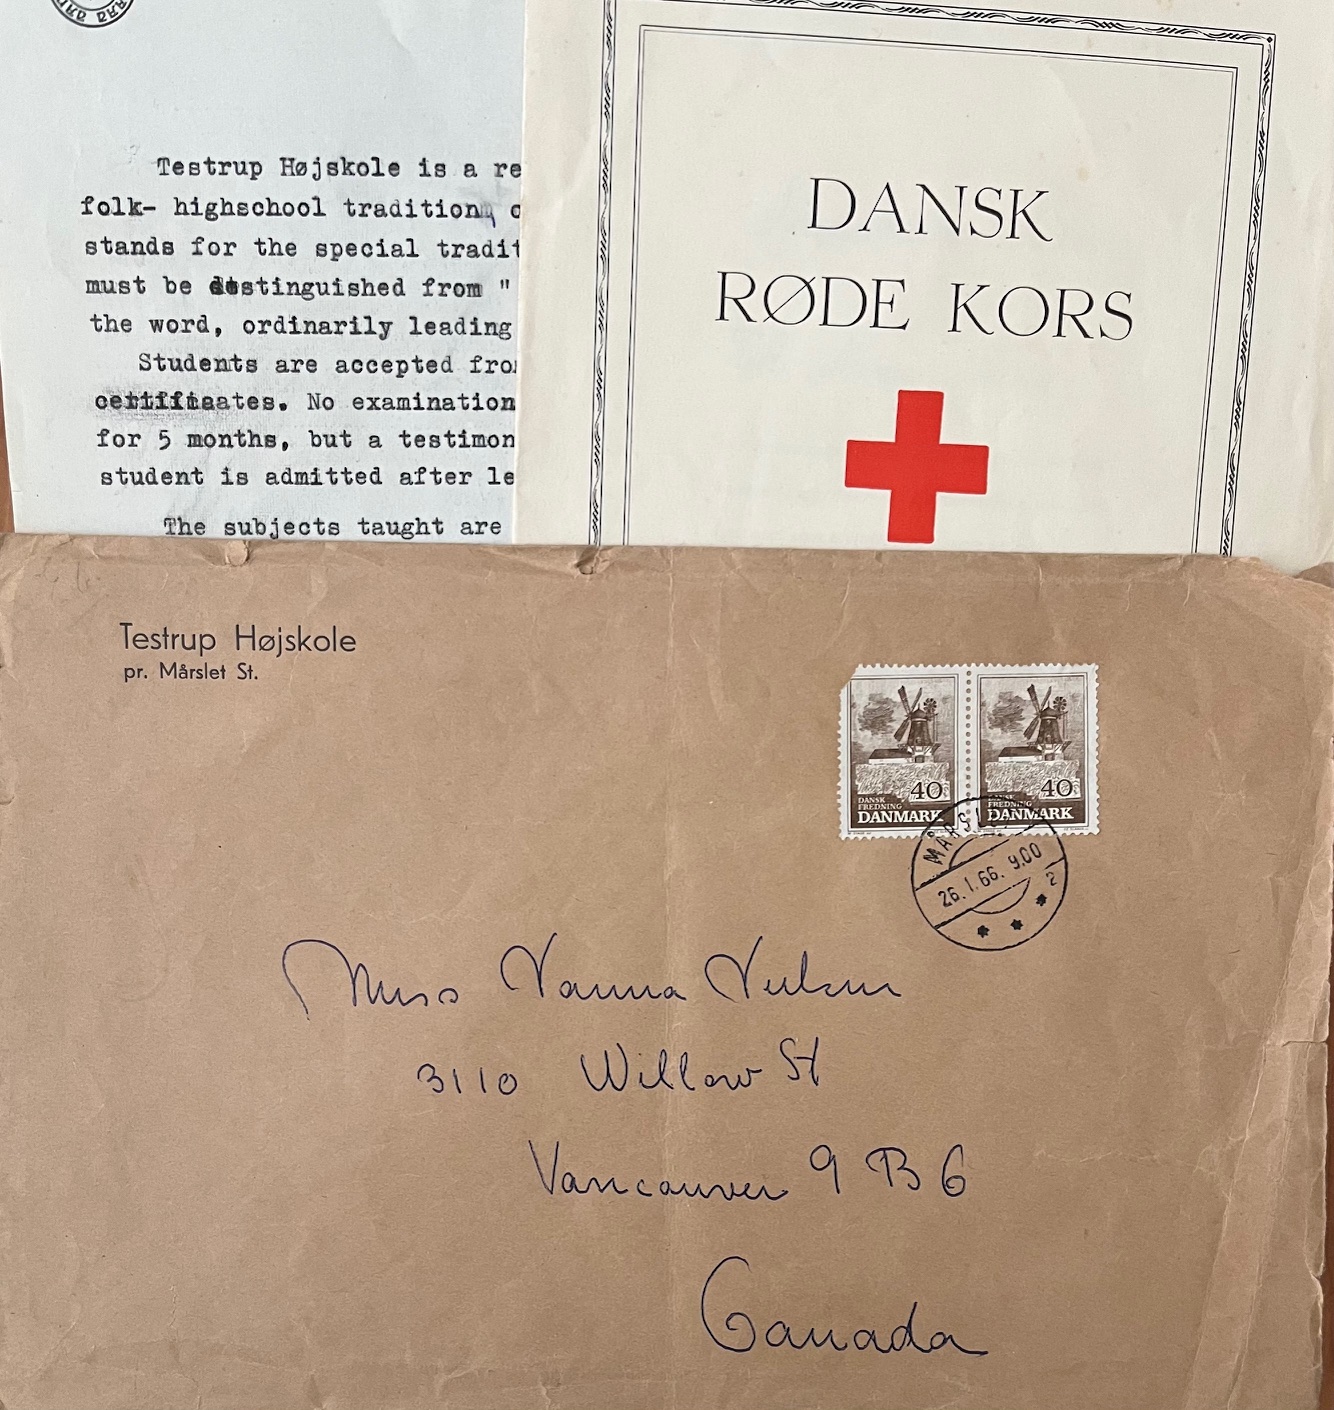 Testrup Højskole is a re
folk- highschool tradition, o
stands for the special tradit
must be distinguished from "
the word, ordinarily leading
Students are accepted fro
certificates. No examination
for 5 months, but a testimon
student is admitted after le
The subjects taught are
DANSK
RØDE KORS
Testrup Højskole
pr. Mårslet St.
40
DANSK
FREDNING
DANMARK
40
DANSK
FREDNING
DANMARK
MÅRSLET
26.1.66. 9.00
2
Miss Vanna
3110 Willow St
Vancouver 9 B C
Canada